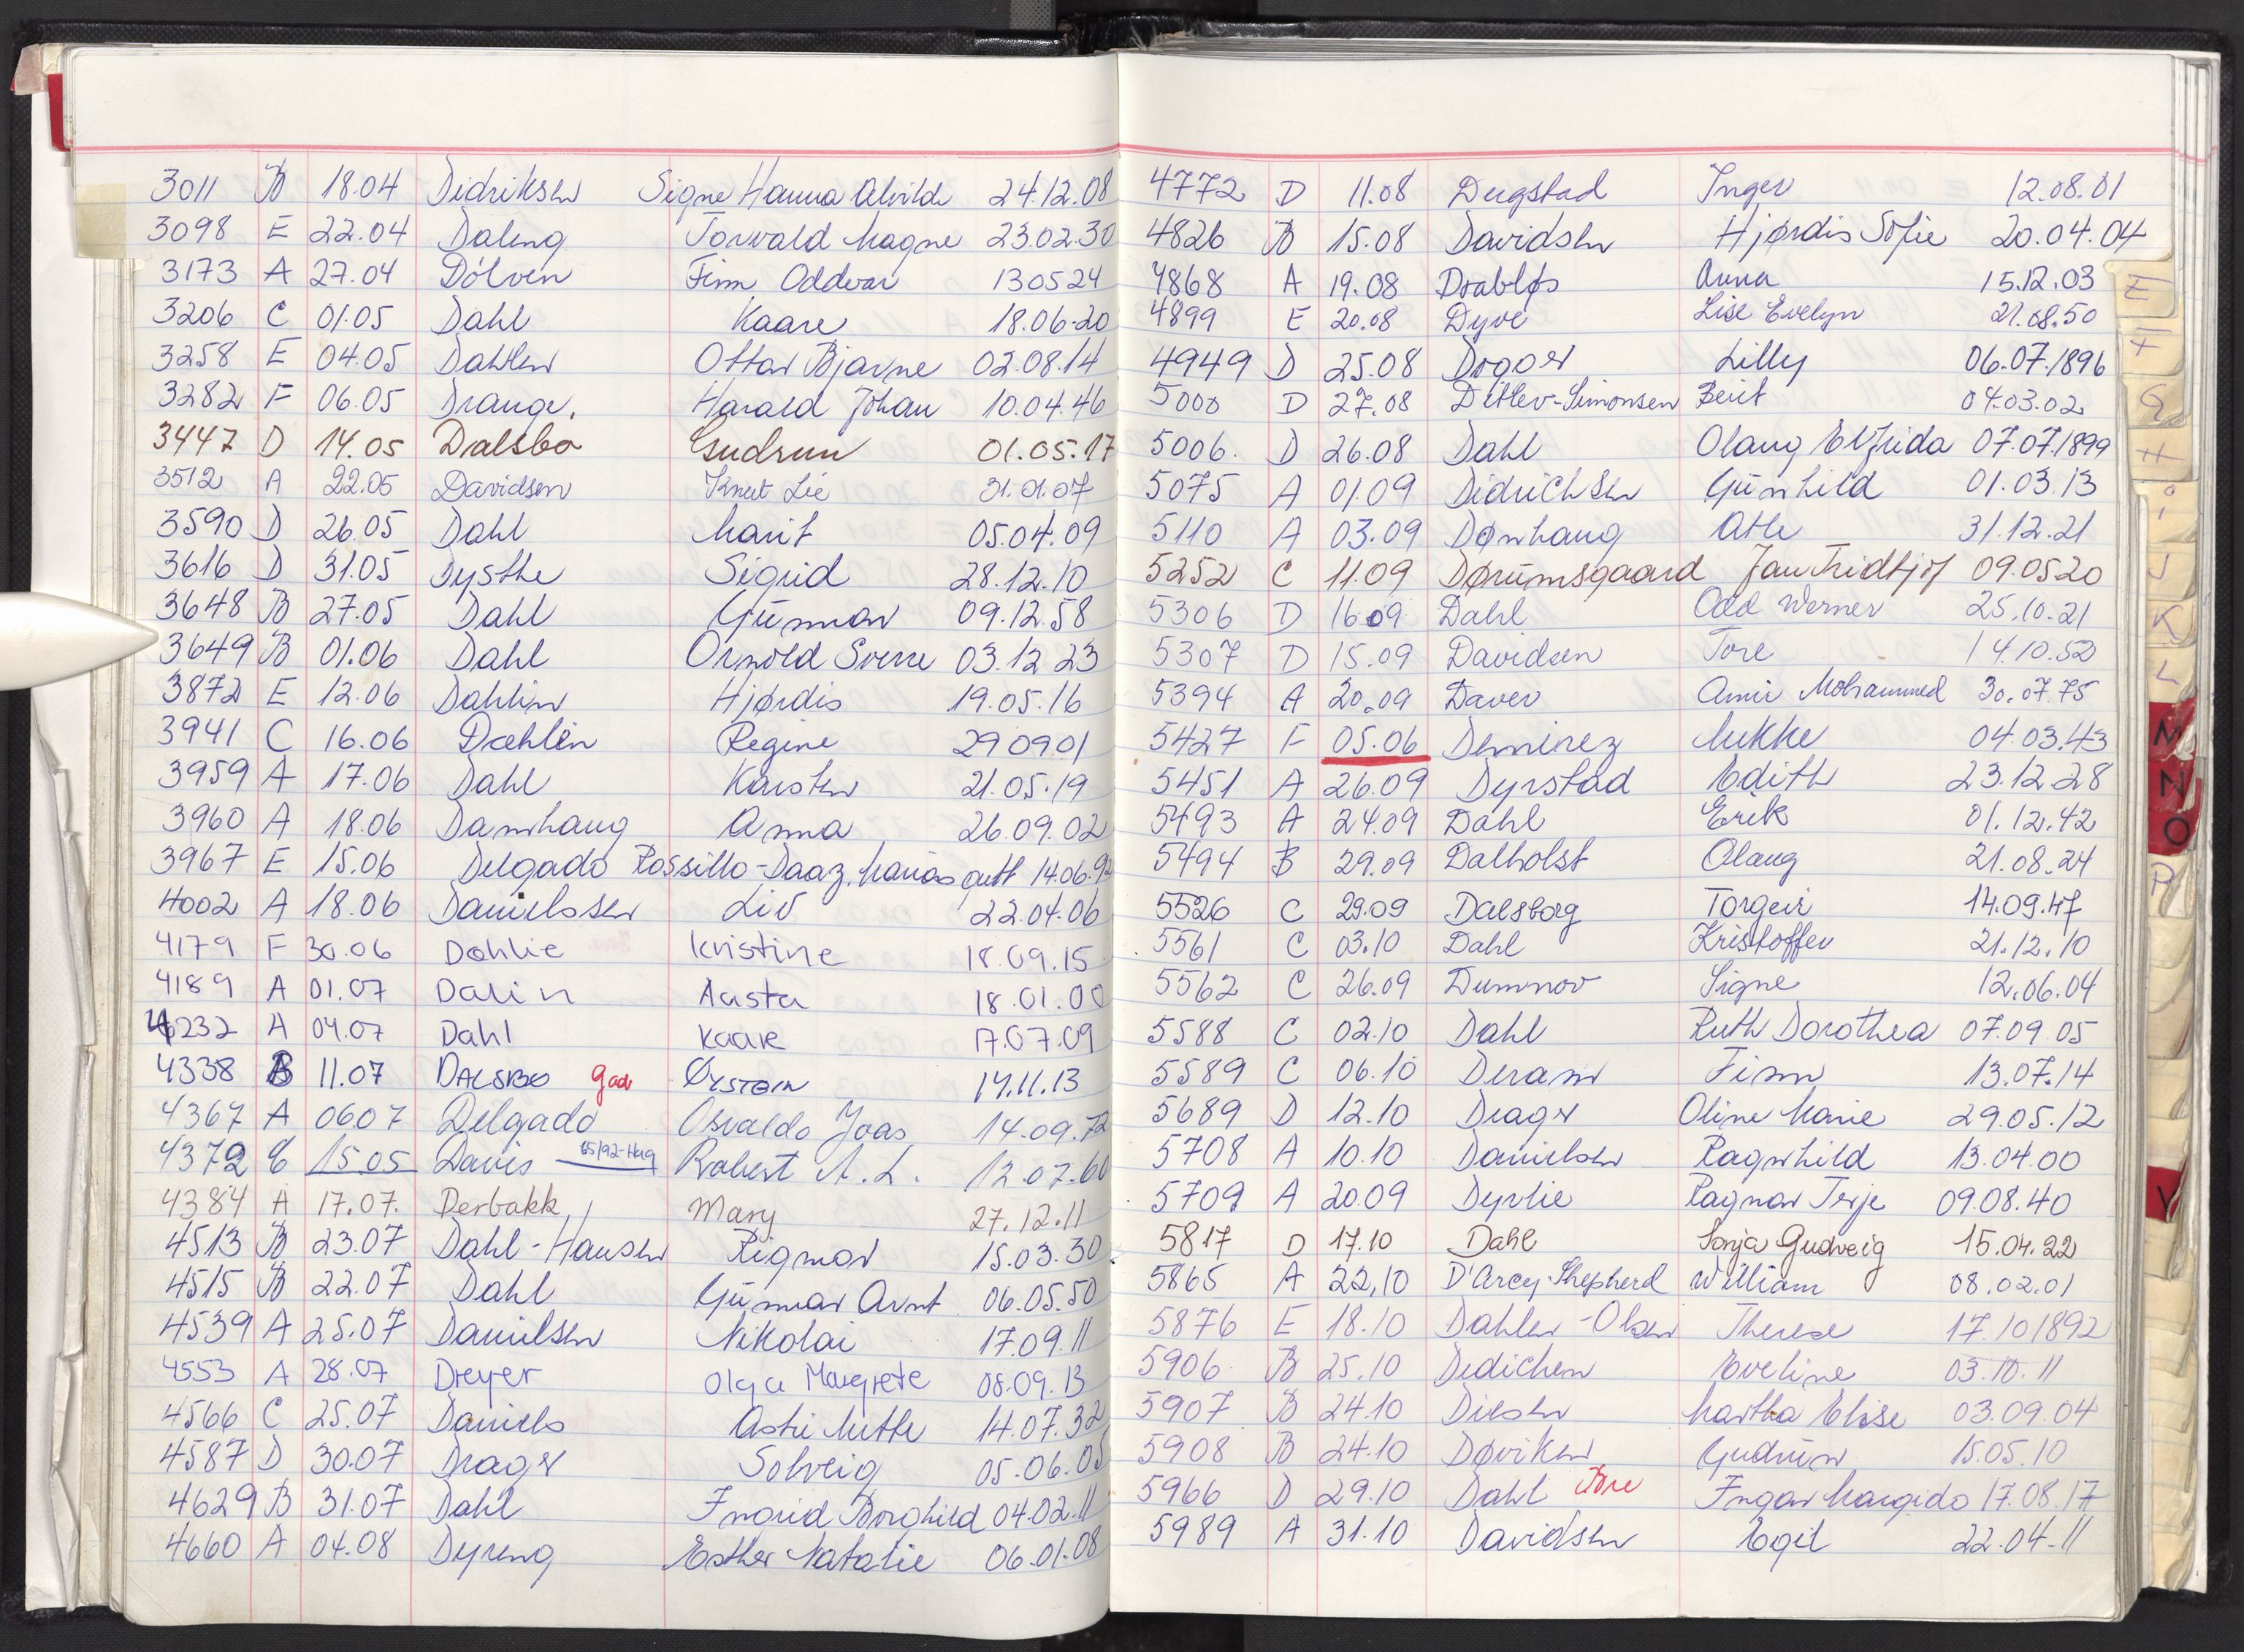 3011 B 18.04 Didriksen Signe Hanna Alvilde 24.12.08
3098 E 22.04 Daleng Torvald Magne 23.02.30
3173 A 27.04 Dølven Finn Oddvar 130524
3206 C 01.05 Dahl Kaare 18.06.20
3258 E 04.05 Dahlen Ottar Bjarne 02.08.14
3282 F 06.05 Drange. Harald Johan 10.04.46
3447 D 14.05 Dalsbø Gudrun 01.05.17
3512 A 22.05 Davidsen Knut Lie 31.01.07
3590 D 26.05 Dahl Marit 05.04.09
3616 D 31.05 Dysthe Sigrid 28.12.10
3648 B 27.05 Dahl Gunnar 09.12.58
3649 B 01.06 Dahl Ornold Sverre 03.12 23
3872 E 12.06 Dahlin Hjørdis 19.05.16
3941 C 16.06 Dæhlen Regine 290901
3959 A 17.06 Dahl Karsten 21.05.19
3960 A 18.06 Damhaug Anna 26.09.02
3967 E 15.06 Delgado Rossillo-Daaz. Marias gutt 14.06.92
4002 A 18.06 Danielsen Liv 22.04.06
4179 F 30.06 Dahlie Kristine 18.09.15
4189 A 01.07 Dalin Aasta 18.01.00
4232 A 04.07 Dahl Kaare 17.07.09
4338 B 11.07 DALSBØ gad ØYSTEIN 14.11.13
4367 A 0607 Delgado Osvaldo Joas 14.09.72
4372 E 15.05 Davis 65/92-Hag Robert A. L. 12.07.60
4384 A 17.07. Derbakk Mary 27.12.11
4513 B 23.07 Dahl-Hansen Rigmor 15.03.30
4515 B 22.07 Dahl Gunnar Arnt 06.05.50
4539 A 25.07 Danielsen Nikolai 17.09.11
4553 A 28.07 Dreyer Olga Margrete 08.09.13
4566 C 25.07 Daniels Astri Mette 14.07.32
4587 D 30.07 Drager Solveig 05.06.05
4629 B 31.07 Dahl Ingrid Borghild 04.02.11
4660 A 04.08 Dyreng Esther Natalie 06.01.08
4772 D 11.08 Dugstad Inger 12.08.01
4826 B 15.08 Davidsen Hjørdis Sofie 20.04.04
4868 A 19.08 Drabløs Anna 15.12.03
4899 E 20.08 Dyve Lise Evelyn 21.08.50
4949 D 25.08 Doger Lilly 06.07.1896
5000 D 27.08 Ditlev-Simonsen Berit 04.03.02
5006. D 26.08 Dahl Olaug Elfrida 07.07.1899
5075 A 01.09 Didrichsen Gunhild 01.03.13
5110 A 03.09 Dønhaug Atle 31.12.21
5252 C 11.09 Dørumsgaard Jan Fridtjof 09.0520
5306 D 16.09 Dahl Odd Werner 25.10.21
5307 D 15.09 Davidsen Tore 14.10.52
5394 A 20.09 Daver Amir Mohammed 30.07.75
5427 F 05.06 Demirez Mukke 04.03.43
5451 A 26.09 Dyrstad Edith 23.12.28
5493 A 24.09 Dahl Erik 01.12.42
5494 B 29.09 Dalholst Olaug 21.08.24
5526 C 29.09 Dalsborg Torgeir 14.09.47
5561 C 03.10 Dahl Kristoffer 21.12.10
5562 C 26.09 Dumnov Signe 12.06.04
5588 C 02.10 Dahl Ruth Dorothea 07.09.05
5589 C 06.10 Deram Finn 13.07.14
5689 D 12.10 Drager Oline Marie 29.05.12
5708 A 10.10 Danielsen Ragnhild 13.04.00
5709 A 20.09 Dyrlie Ragnar Terje 09.08.40
5817 D 17.10 Dahl Sonja Gudveig 15.04.22
5865 A 22.10 D'Arcy-Shepherd William 08.02.01
5876 E 18.10 Dahler-Olsen Therese 17.10 1892
5906 B 25.10 Dedichen Eveline 03.10.11
5907 B 24.10 Diesen Martha Elise 03.09.04
5908 B 24.10 Døviken Gudrun 15.05.10
5966 D 29.10 Dahl Tore Ingar Margido 17.08.17
5989 A 31.10 Davidsen Egil 22.04.11
E
F
G
H
i
J
K
L
M
N
O
P
V